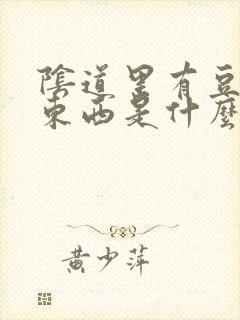 陰道里有豆
東西是什麼
黃少萍